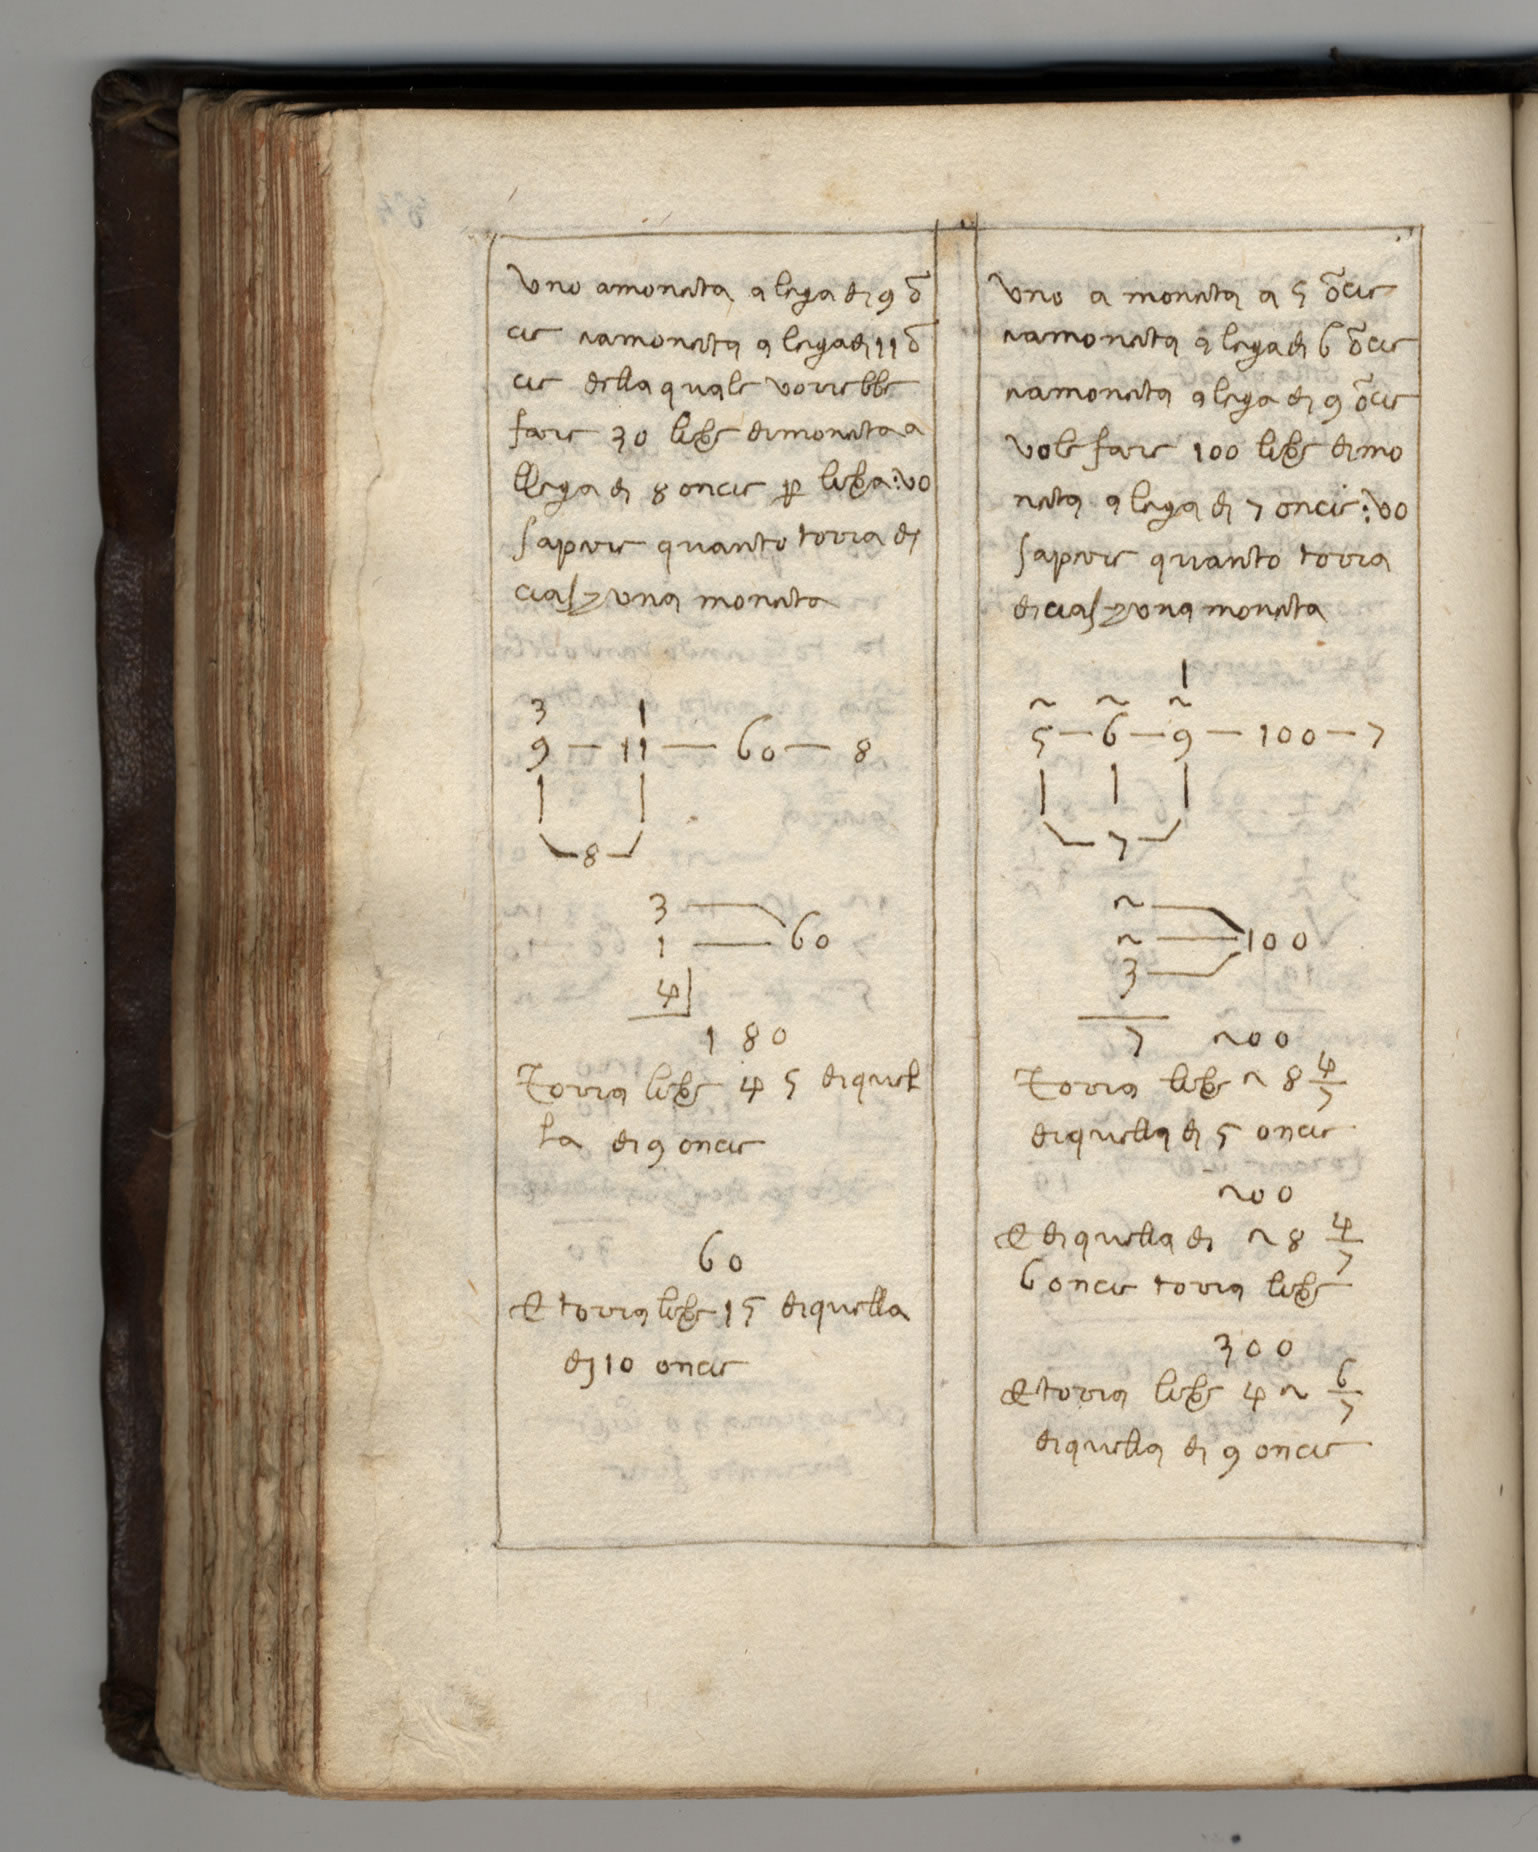 Uno a moneta a lega di 9 õ
cie e a moneta a lega di 11 õ
cie della quale vorrebbe
fare 30 libre di moneta a
llega di 8 oncie p libra: vo
sapere quanto torra di
ciaschuna moneta
3 1
9 — 11 — 60 — 8
8
3
1 60
4
1 80
Torra libre 45 di quel
la di 9 oncie
60
Et torra libre 15 di quella
di 10 oncie
Uno a moneta a 5 õcie
e a moneta a lega di 6 õcie
e a moneta a lega di 9 õcie
vole fare 100 libre di mo
neta a lega di 7 oncie: vo
sapere quanto torra
di ciaschuna moneta
1
2 2 2
5 — 6 — 9 — 100 — 7
7
2
2 100
3
7 200
Torra libre 28 4/7
di quella di 5 oncie
200
Et di quella di 28 4/7
6 oncie torra libre
300
Et torra libre 42 6/7
di quella di 9 oncie